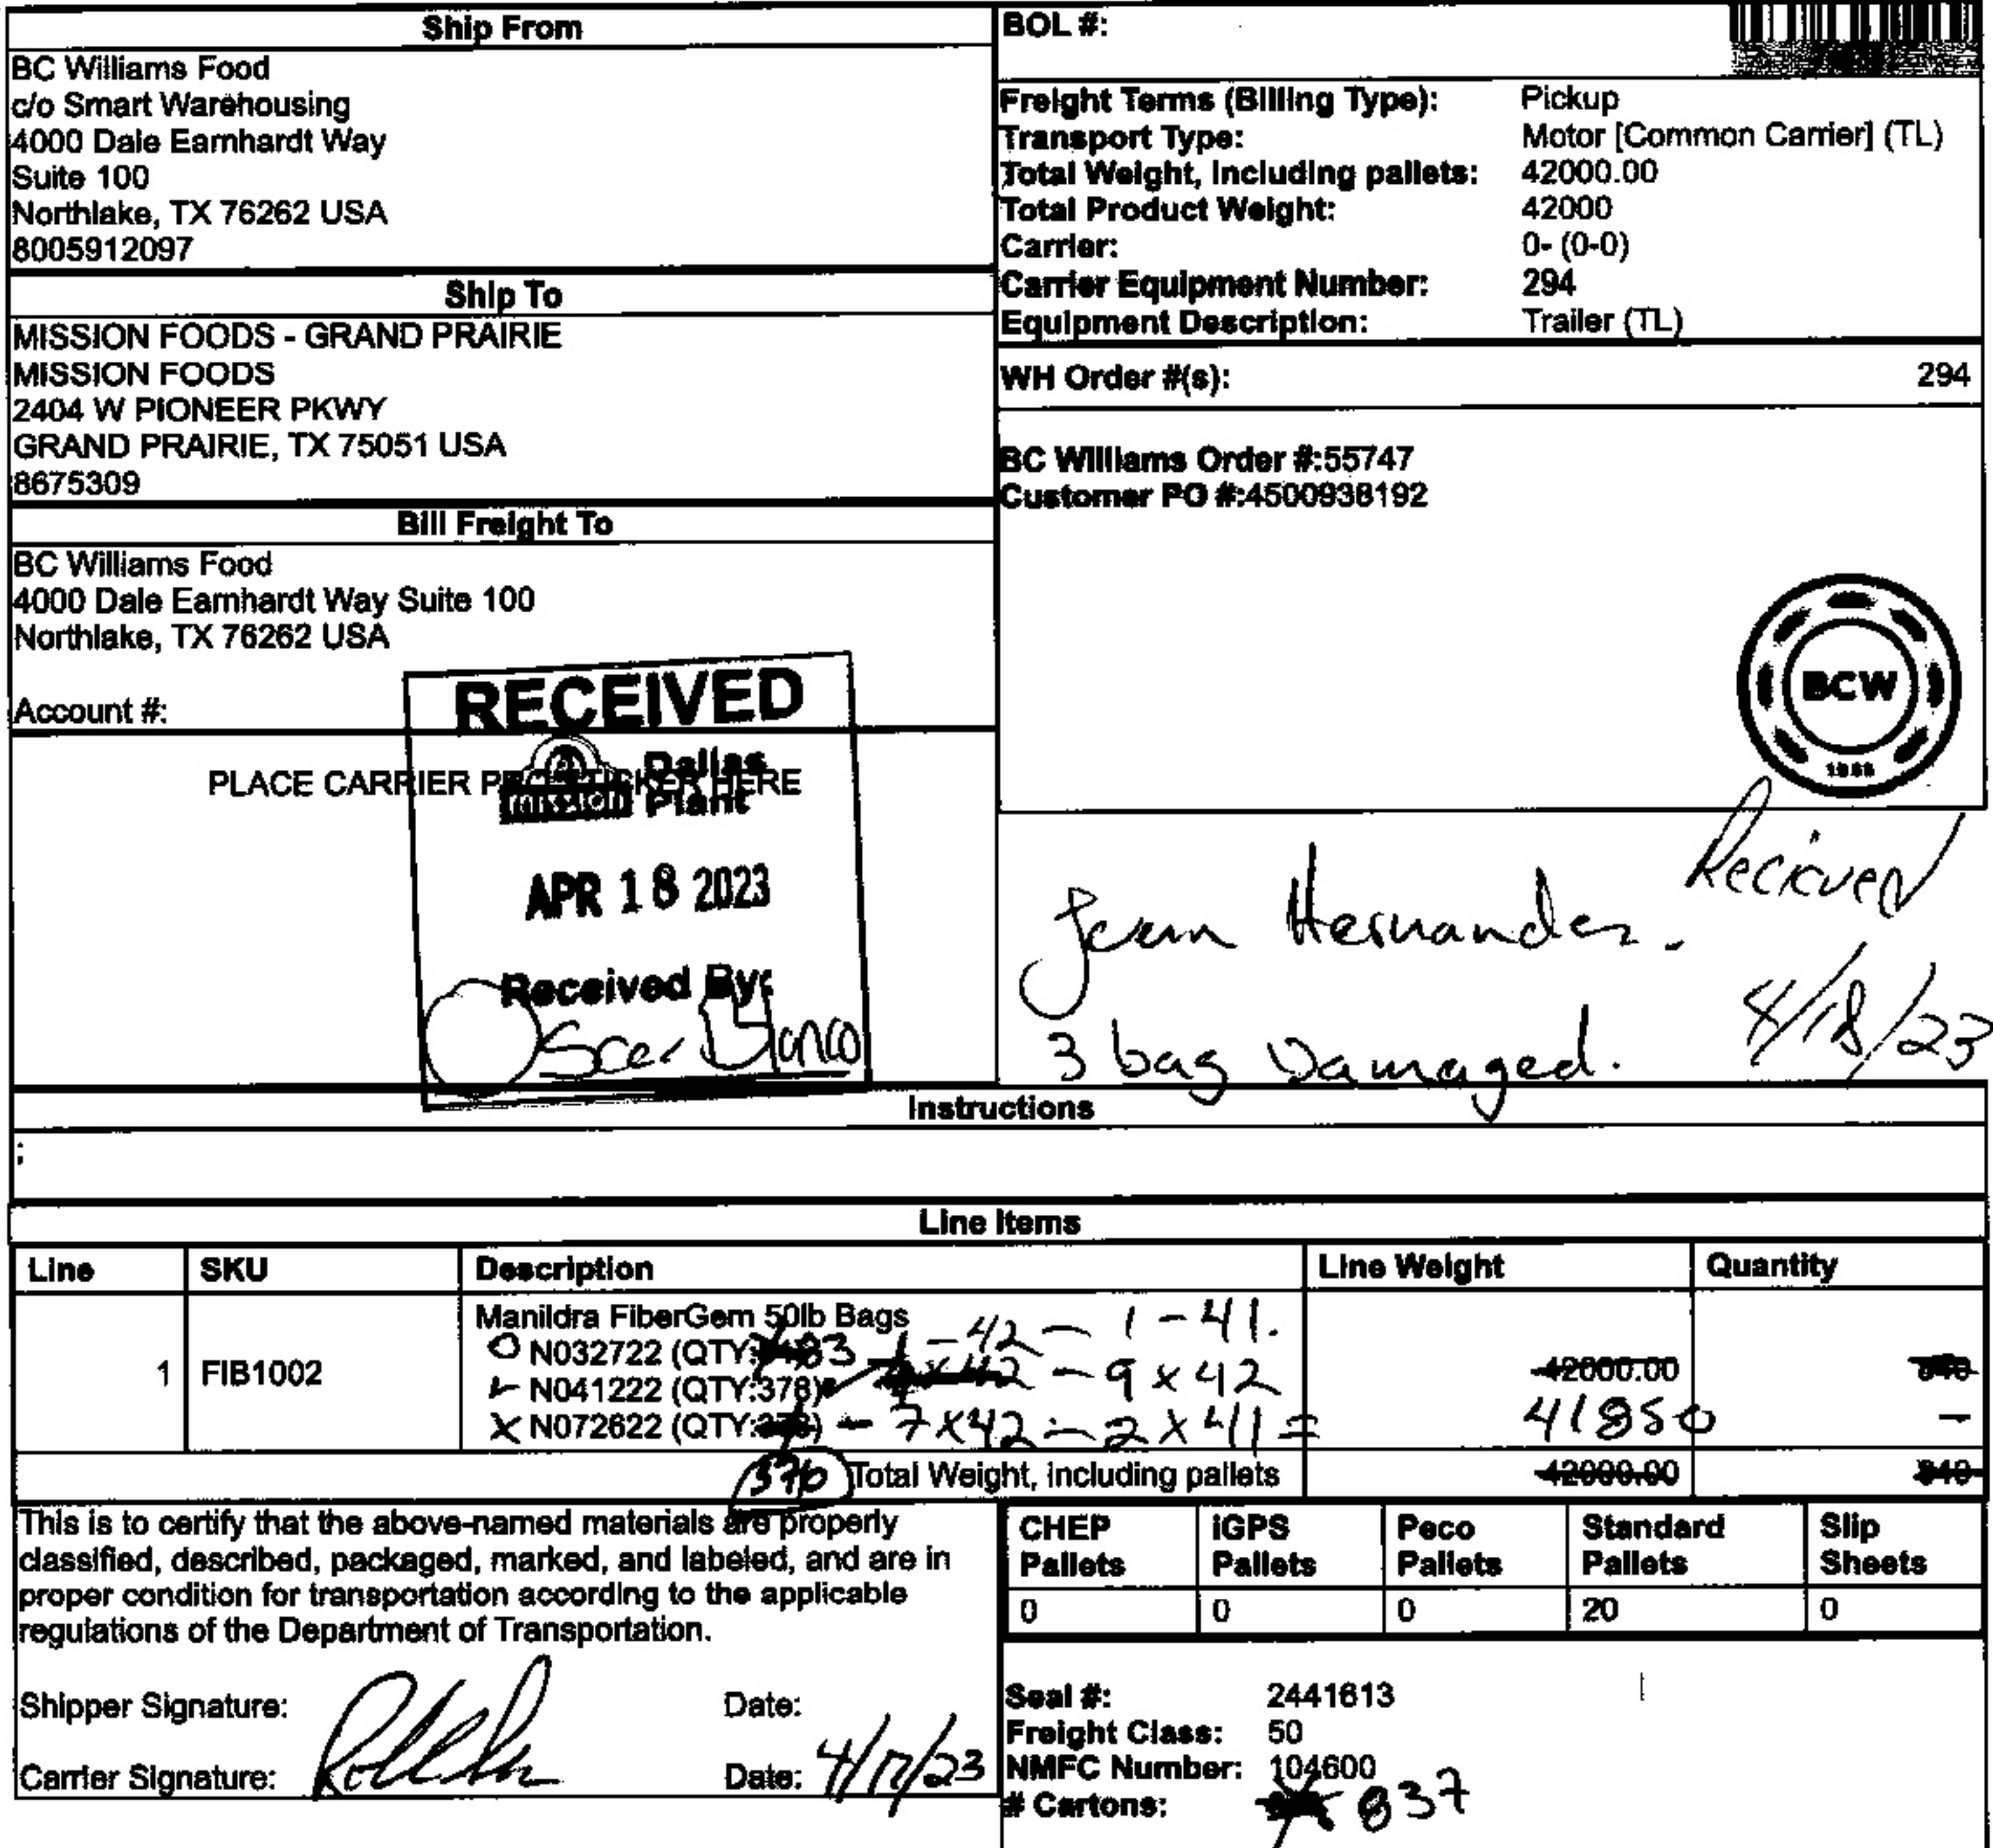 Ship From
BC Williams Food
c/o Smart Warehousing
4000 Dale Earnhardt Way
Suite 100
Northlake, TX 76262 USA
8005912097
Ship To
MISSION FOODS - GRAND PRAIRIE
MISSION FOODS
2404 W PIONEER PKWY
GRAND PRAIRIE, TX 75051 USA
8675309
Bill Freight To
BC Williams Food
4000 Dale Earnhardt Way Suite 100
Northlake, TX 76262 USA
Account #:
PLACE CARRIER HERE
RECEIVED
mission Dallas
Plant
APR 18 2023
Received By:
Oscar
BOL #:
Freight Terms (Billing Type): Pickup
Transport Type: Motor [Common Carrier] (TL)
Total Weight, including pallets: 42000.00
Total Product Weight: 42000
Carrier: 0- (0-0)
Carrier Equipment Number: 294
Equipment Description: Trailer (TL)
WH Order #(s): 294
BC Williams Order #:55747
Customer PO #:4500938192
BCW
Recieved
Hernandez.
4/18/23
3 bag Damaged.
Instructions
;
Line Items
Line SKU Description Line Weight Quantity
Manildra FiberGem 50lb Bags
O N032722 (QTY: 83 1 - 42 - 1 - 41.
N041222 (QTY:378) - 9 x 42
X N072622 (QTY: ) - 7 x 42 - 2 x 41 =
1 FIB1002 42000.00 840
41850 -
376 Total Weight, including pallets 42000.00 840
This is to certify that the above-named materials are properly
classified, described, packaged, marked, and labeled, and are in
proper condition for transportation according to the applicable
regulations of the Department of Transportation.
Shipper Signature: Date:
Carrier Signature: Date: 4/17/23
CHEP Pallets iGPS Pallets Peco Pallets Standard Pallets Slip Sheets
0 0 0 20 0
Seal #: 2441613
Freight Class: 50
NMFC Number: 104600
# Cartons: 837